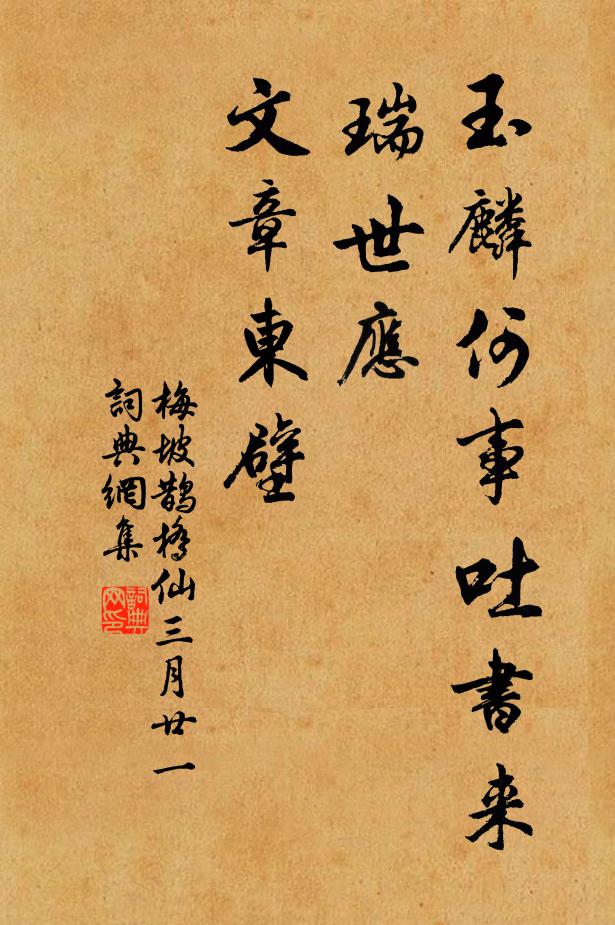 玉麟何事吐书来
瑞世應
文章東壁
梅坡鵲橋仙三月廿一
詞典網集
詞典网印